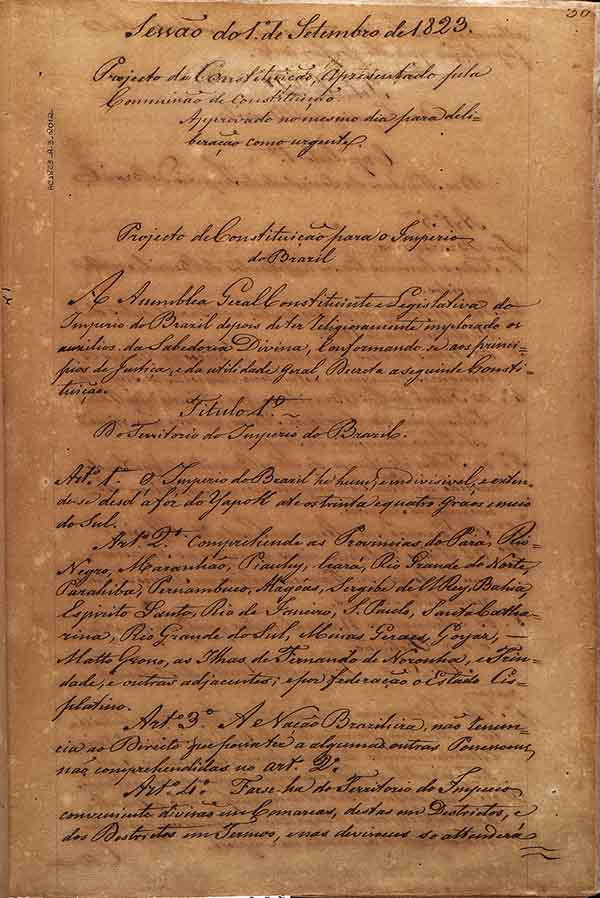 30
Sessão do 1.º de Setembro de 1823.
Projecto de Constituição, Apresentado pela
Commissão de Constituição.
Approvado no mesmo dia para deli-
beração como urgente.
Projecto de Constituição para o Imperio
do Brazil
A Assemblea Geral Constituinte e Legislativa do
Imperio do Brazil depois de ter religiosamente implorado os
auxilios da Sabedoria Divina, Conformando-se aos princi-
pios de Justiça, e da utilidade geral, Decreta a seguinte Consti-
tuição.
Titulo 1.º
Do Territorio do Imperio do Brazil.
Art.º 1.º O Imperio do Brazil he hum, e indivisivel, e esten-
de-se desd'a fóz do Yapok até os trinta e quatro gráos e meio
do Sul.
Art.º 2.º Comprehende as Provincias do Pará, Rio
Negro, Maranhão, Piauhy, Ceará, Rio Grande do Norte,
Parahiba, Pernambuco, Alagôas, Sergipe d'El Rey, Bahia,
Espirito Santo, Rio de Janeiro, S. Paulo, Santa Catha-
rina, Rio Grande do Sul, Minas Geraes, Goyaz, —
Matto Grosso, as Ilhas de Fernando de Noronha, e Trin-
dade, e outras adjacentes; e por federação o Estado Cis-
platino.
Art.º 3.º A Nação Brazileira, não renun-
cia ao Direito que possa ter a algumas outras Possessões,
não comprehendidas no art. 2.º
Art.º 4.º Far-se-ha do Territorio do Imperio
conveniente divisão em Comarcas, destas em Destrictos, e
dos Destrictos em Termos, e nas divisoens se attenderá